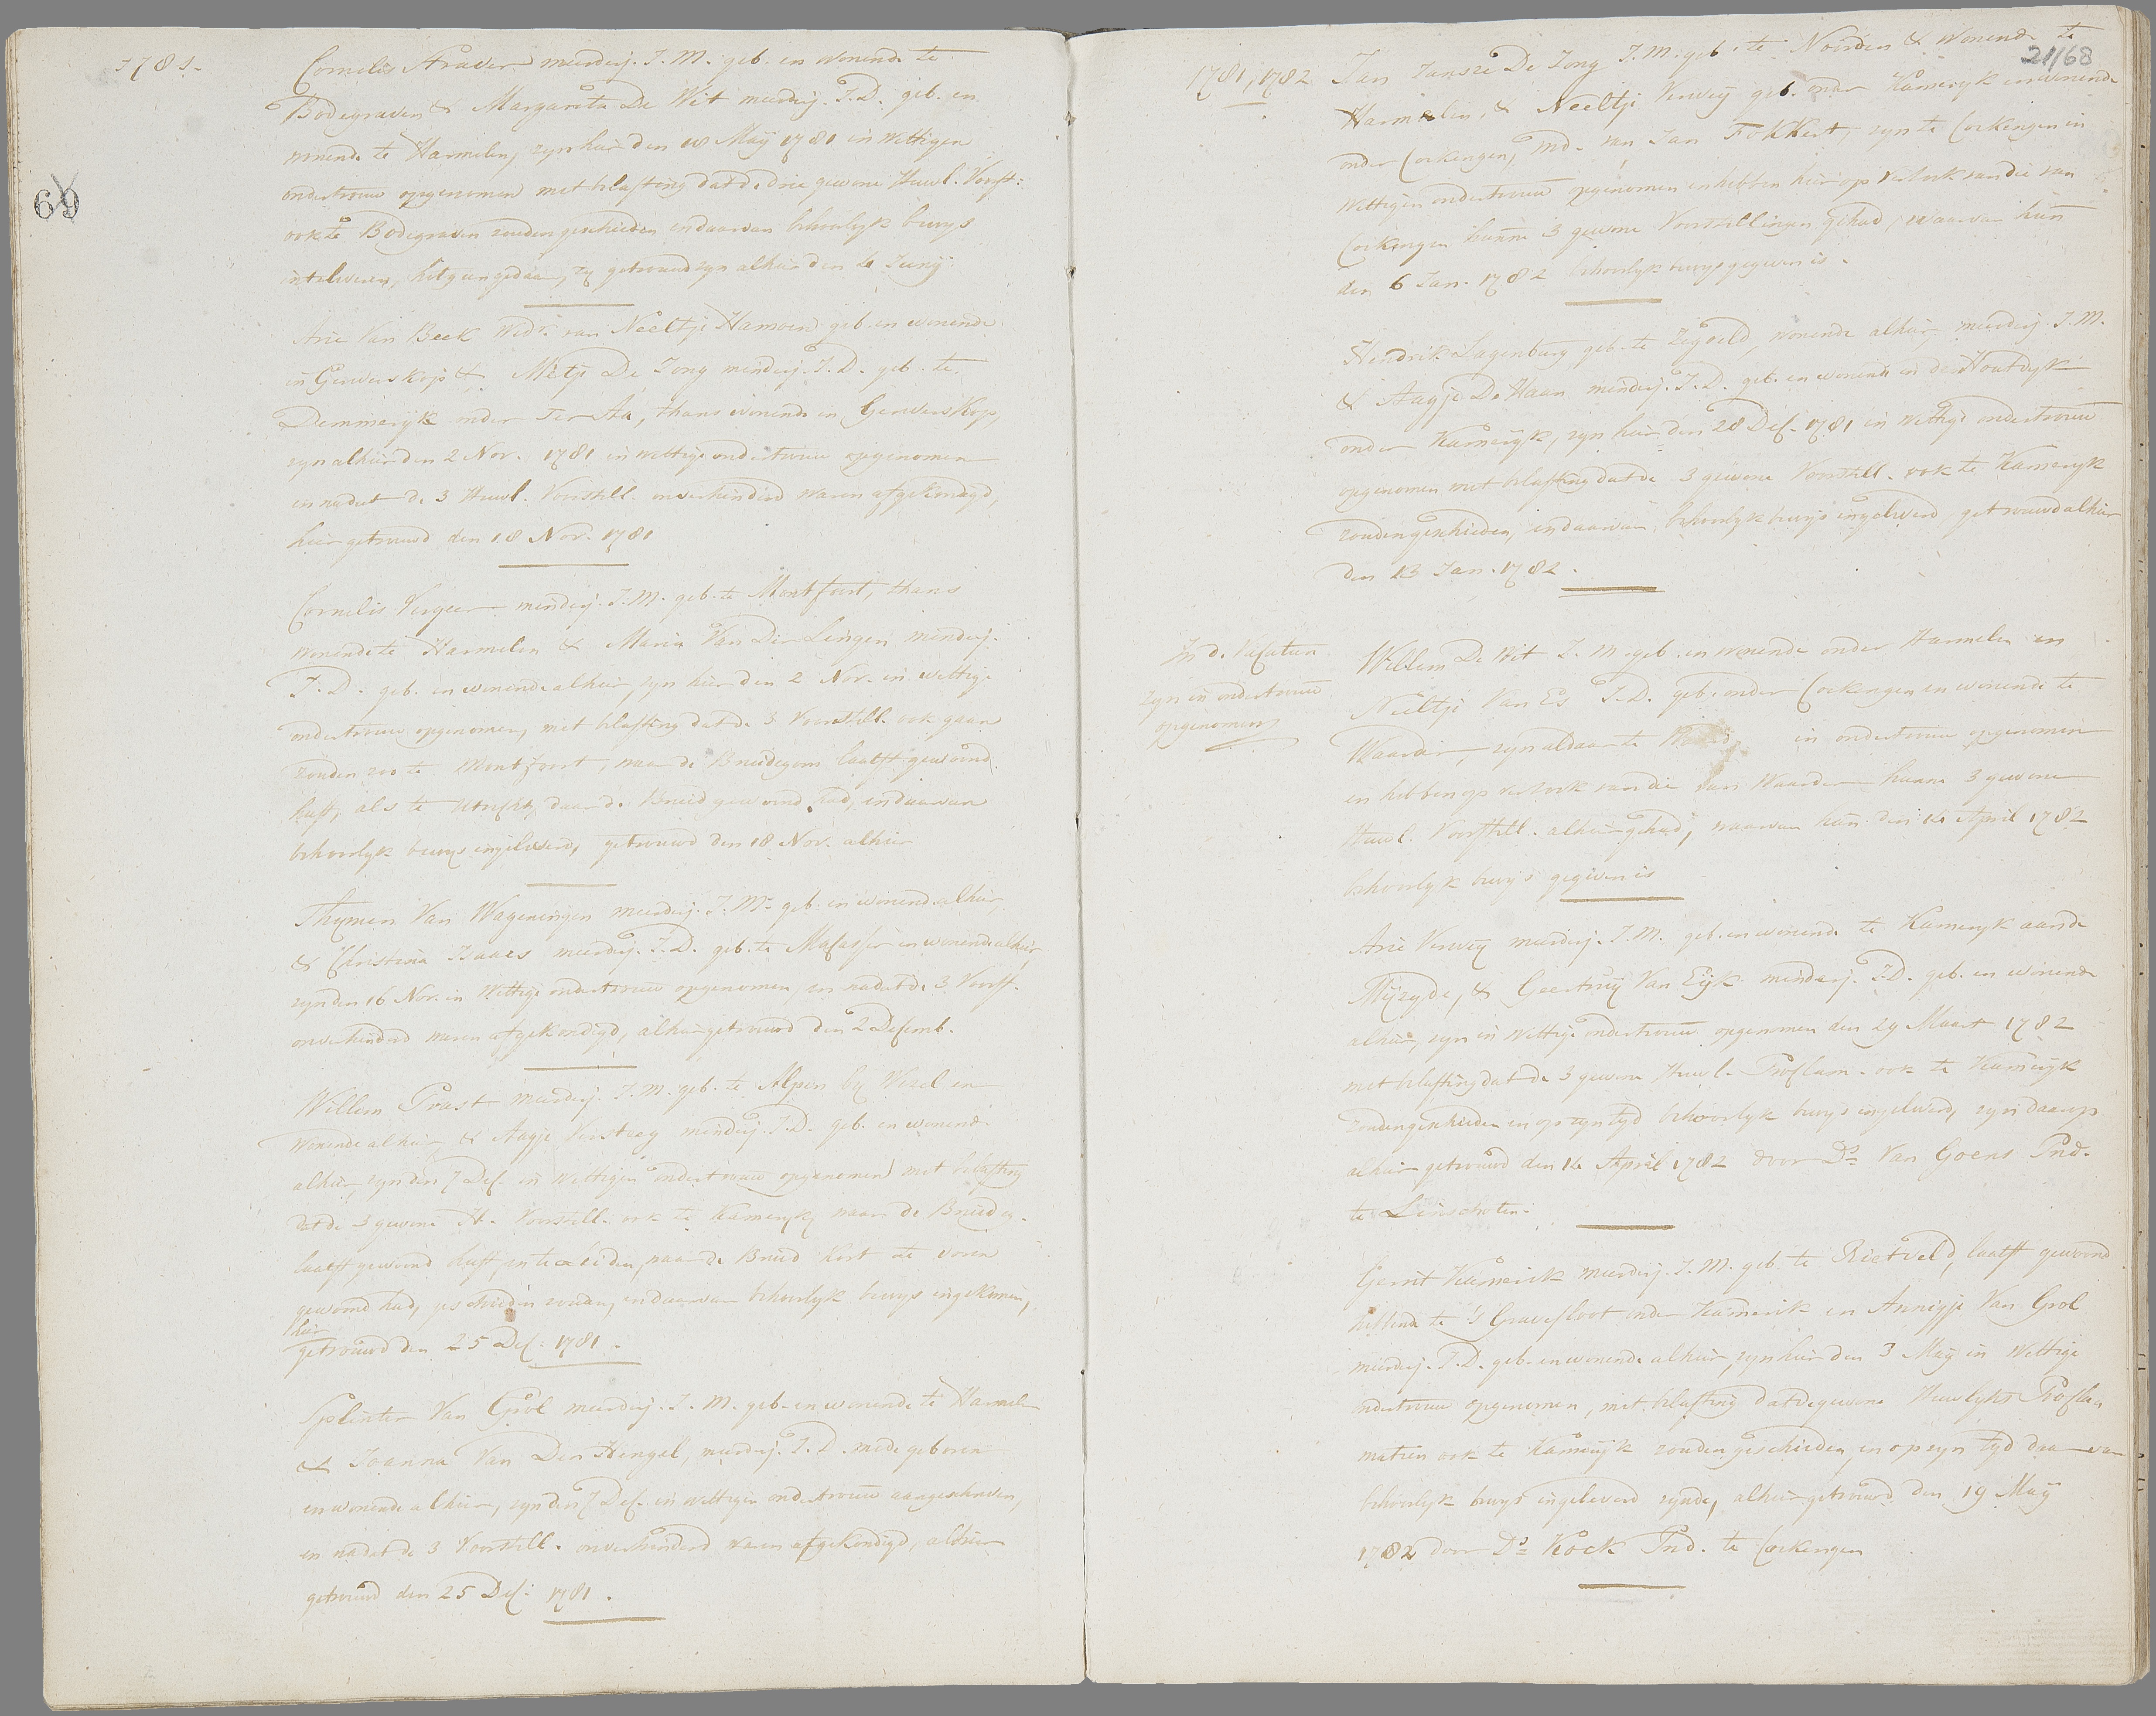 1781.
69
Cornelis Straver meerderj. J. M. geb. en wonende te
Bodegraven & Margareta De Wit meerderj. J. D. geb. en
wonende te Harmelen, zyn hier den 18 Maÿ 1781 in wettigen
ondertrouw opgenomen met belasting dat de drie gewone Huwl. Voorst:
ook te Bodegraven zouden geschieden en daarvan behoorlyk bewys
inteleveren, hetgeen gedaan, zy getrouwd zyn alhier den 4 Junÿ
Arie Van Beek Wedr. van Neeltje Hamoen geb. en wonende
in Gerverskop & Metje De Jong minderj. J. D. geb. te
Demmerijk onder Ter Aa, thans wonende in Gerverskop,
zyn alhier den 2 Nov. 1781 in wettige ondertrouw opgenomen
en nadat de 3 Huwl. Voorstell. onverhinderd waren afgekondigd,
hier getrouwd den 18 Nov. 1781
Cornelis Vergeer minderj. J. M. geb. te Montfoort, thans
wonende te Harmelen & Maria Van Der Lingen minderj.
J. D. geb. en wonende alhier zyn hier den 2 Nov. in wettige
ondertrouw opgenomen, met belasting dat de 3 Voorstell. ook gaan
zouden zoo te Montfoort, waar de Bruidegom laatst gewoond
heeft, als te Utrecht daar de Bruid gewoond had, en daarvan
behoorlyk bewys ingeleverd, getrouwd den 18 Nov. alhier
Thymen Van Wageningen meerderj. J. M. geb. en wonende alhier,
& Christina Isaacs meerderj. J. D. geb. te Macasser en wonende alhier
zyn den 16 Nov. in Wettige ondertrouw opgenomen, en nadat de 3 Voorst.
onverhinderd waren afgekondigd, alhier getrouwd den 2 Decemb.
Willem Prast meerderj. J. M. geb. te Alpen by Wezel en
wonende alhier, & Aagje Versteeg minderj. J. D. geb. en wonende
alhier, zyn den 7 Dec. in Wettigen ondertrouw opgenomen met belasting
dat de 3 gewone H. Voorstell. ook te Kameryk, waar de Bruideg.
laatst gewoond heeft, en te Leiden, waar de Bruid kort te voren
gewoond had, geschieden zouden, en daarvan behoorlyk bewys ingekomen,
hier
getrouwd den 25 Dec: 1781.
Splinter Van Grol meerderj. J. M. geb. en wonende te Harmelen
& Joanna Van Den Hengel, meerderj. J. D. mede geboren
en wonende alhier, zyn den 7 Dec. in wettigen ondertrouw aangeschreven,
en nadat de 3 Voorstell. onverhinderd waren afgekondigd, alhier
getrouwd den 25 Dec: 1781.
21/68
1781, 1782
Jan Jansze De Jong J. M. geb. te Noorden & wonende te
Harmelen, & Neeltje Verweÿ geb. onder Kameryk en wonende
onder Cockengen, Wed. van Jan Fokkert, zyn te Cockengen in
Wettigen ondertrouw opgenomen en hebben hier op verzoek van die van
Cockengen hunne 3 gewone Voorstellingen gehad, waarvan hun
den 6 Jan. 1782 behoorlyk bewys gegeven is.
Hendrik Lagenburg geb. te Zegveld, wonende alhier, meerderj. J. M.
& Aagje De Haan minderj. J. D. geb. en wonende in den Houtdyk
onder Kameryk, zyn hier den 28 Dec. 1781 in wettige ondertrouw
opgenomen met belasting dat de 3 gewone Voorstell. ook te Kameryk
zouden geschieden, en daarvan behoorlyk bewys ingeleverd, getrouwd alhier
den 13 Jan. 1782.
In d. Vacature
zyn in ondertrouw
opgenomen
Willem De Wit J. M. geb. en wonende onder Harmelen en
Neeltje Van Es J. D. geb. onder Cockengen en wonende te
Waarder, zyn aldaar te in ondertrouw opgenomen
en hebben op verzoek van die van Waarder hunne 3 gewone
Huwl. Voorstell. alhier gehad, waarvan hun den 14 April 1782
behoorlyk bewys gegeven is
Arie Verweÿ meerderj. J. M. geb. en wonende te Kameryk aan de
Mijzyde, & Geertruÿ Van Eÿk minderj. J. D. geb. en wonende
alhier, zyn in Wettige ondertrouw opgenomen den 29 Maart 1782
met belasting dat de 3 gewone Huwl. Proclam. ook te Kameryk
zouden geschieden en op zyn tyd behoorlyk bewys ingeleverd, zyn daarop
alhier getrouwd den 14 April 1782 door Ds. Van Goens Pred.
te Linschoten.
Gerrit Kamerik meerderj. J. M. geb. te Rietveld, laatst gewoond
hebbende te 's Gravesloot onder Kamerik en Annigje Van Grol
meerderj. J. D. geb. en wonende alhier, zyn hier den 3 Maÿ in Wettige
ondertrouw opgenomen, met belasting dat de gewone Huwlyks Procla-
matien ook te Kameryk zouden geschieden, en op zyn tyd daarvan
behoorlyk bewys ingeleverd zynde, alhier getrouwd den 19 Maÿ
1782 door Ds. Kock Pred. te Cockengen